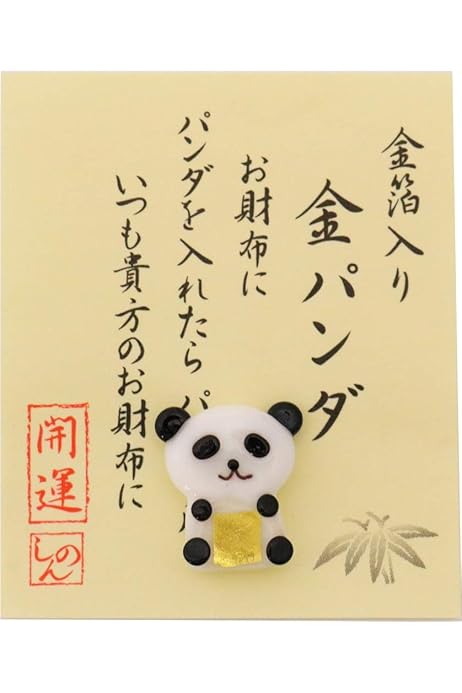 金箔入り
金パンダ
お財布に
パンダを入れたら パ
いつも貴方のお財布に
開運
しのん